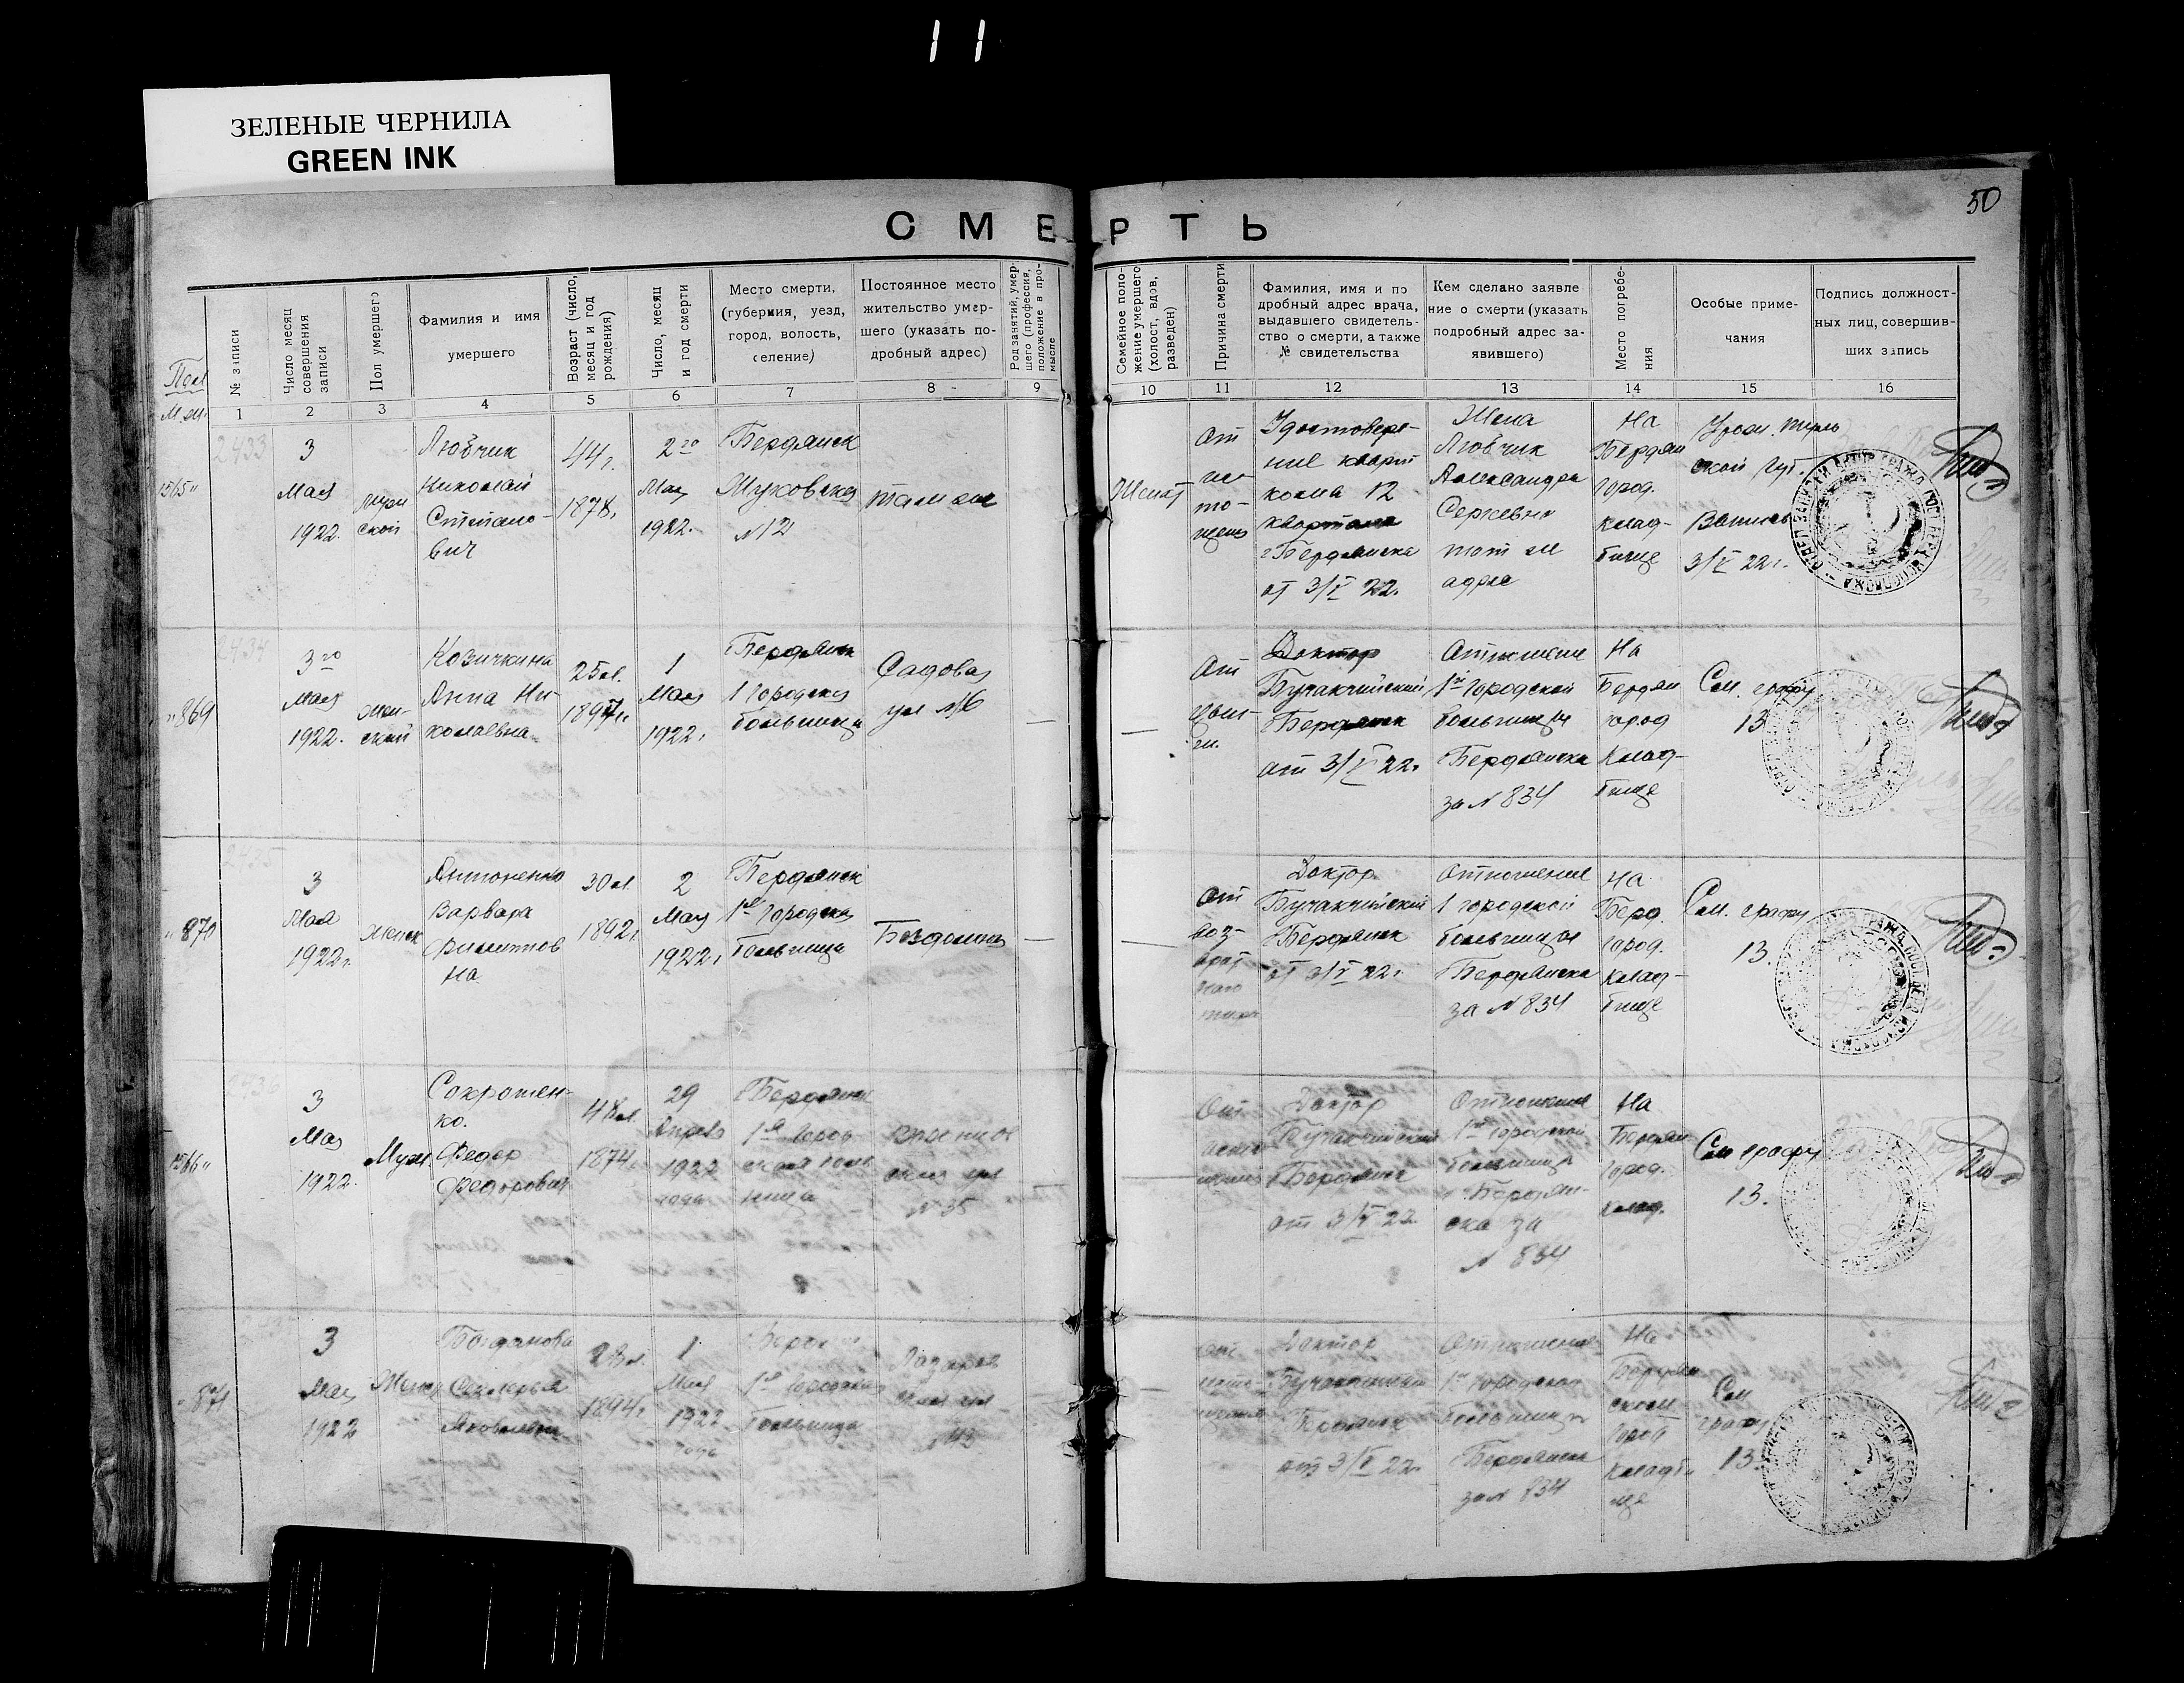 11
ЗЕЛЕНЫЕ ЧЕРНИЛА
GREEN INK
50
СМЕРТЬ
Пол
М. ж.
№ записи
Число месяц совершения записи
Пол умершего
Фамилия и имя умершего
Возраст (число, месяц и год рождения)
Число, месяц и год смерти
Место смерти, (губерния, уезд, город, волость, селение)
Постоянное место жительство умершего (указать подробный адрес)
Род занятий, умершего (профессия, положение в промысле
Семейное положение умершего (холост, вдов, разведен)
Причина смерти
Фамилия, имя и подробный адрес врача, выдавшего свидетельство о смерти, а также № свидетельства
Кем сделано заявление о смерти (указать подробный адрес заявившего)
Место погребения
Особые примечания
Подпись должностных лиц, совершивших запись
1 2 3 4 5 6 7 8 9 10 11 12 13 14 15 16
2433
1565 "
3
Мая
1922.
Николай
Степано-
вич
44 г.
1878 г.
2го
Мая
1922.
Бердянск
№ 12
там же
Женат
От
ис-
то-
щения
Удостовере-
ние кварт
кома 12
квартала
г Бердянска
от 3/V 22.
Жена
Александра
Сергеевна
тот же
адрес
На
Бердян
город.
клад-
бище
3/V 22 г.
2434
" 869
3го
Мая
1922.
жен-
ский
Козичкина
Анна Ни-
колаевна
25 л.
1897 г.
1
Мая
1922 г.
Бердянск
1 Городская
больница
Садовая
ул №6
—
—
От
цын-
ги.
Доктор
Бучакчийский
г Бердянск
от 3/V 22 г.
Отношение
1ой городской
больницы
г Бердянска
за № 834
На
Бердян
город
клад-
бище
См. графу
13
2435
" 870
3
Мая
1922 г.
женск
Антоненко
Варвара
Филиппов
на
30 л.
1892 г.
2
Мая
1922 г.
Бердянск
1ая Городска
больница
Бездомная
—
—
От
воз-
врат
ного
тифа
Доктор
Бучакчийский
г Бердянск
от 3/V 22 г.
Отношение
1 городской
больницы
г Бердянска
за № 834
На
Берд.
город.
клад-
бище
См. графу
13.
2436
1566 "
3
Мая
1922.
Муж.
Федор
Федорович
48 л.
1874 г.
29
Апреля
1922
года
Бердянск
1ая Город
ская боль
ница
№ 35
От
Доктор
Бучакчийский
г Бердянск
от 3/V 22.
Отношение
1ой городской
больницы
г. Бердян-
ска за
№ 834
На
Бердян
город.
клад.
См графу
13.
" 871
3
Мая
1922
Женск
Богданова
Яковлевна
28 л.
1894 г.
1
Мая
1922
года
1ая Городская
больница
Лазарев
ская ул
—
Доктор
Бучакчийский
г Бердянск
от 3/V 22 г.
Отношение
1ой городской
больницы
г Бердянска
за № 834
На
Бердян
ском
город
кладби
ще
См
графу
13.